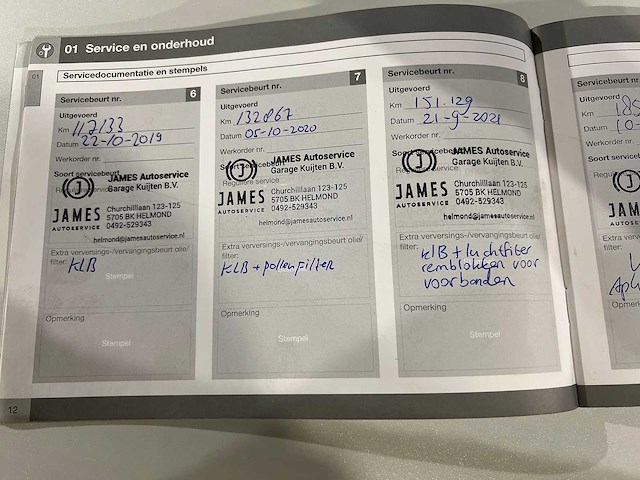 01 Service en onderhoud
01
Servicedocumentatie en stempels
Servicebeurt nr. 6
Uitgevoerd
Km 117133
Datum 22-10-2019
Werkorder nr.
Soort servicebeurt
JAMES Autoservice
Garage Kuijten B.V.
J
JAMES
AUTOSERVICE
Churchilllaan 123-125
5705 BK HELMOND
0492-529343
helmond@jamesautoservice.nl
Extra verversings-/vervangingsbeurt olie/
filter:
KLB
Stempel
Opmerking
Stempel
Servicebeurt nr. 7
Uitgevoerd
Km 132867
Datum 05-10-2020
Werkorder nr.
Soort servicebeurt
Reguliere service
JAMES Autoservice
Garage Kuijten B.V.
J
JAMES
AUTOSERVICE
Churchilllaan 123-125
5705 BK HELMOND
0492-529343
helmond@jamesautoservice.nl
Extra verversings-/vervangingsbeurt olie/
filter:
KLB + pollenfilter
Opmerking
Stempel
Servicebeurt nr. 8
Uitgevoerd
Km 151.129
Datum 21-9-2021
Werkorder nr.
JAMES Autoservice
Garage Kuijten B.V.
J
JAMES
AUTOSERVICE
Churchilllaan 123-125
5705 BK HELMOND
0492-529343
helmond@jamesautoservice.nl
Extra verversings-/vervangingsbeurt olie/
filter:
KLB + luchtfilter
remblokken voor
voorbanden
Opmerking
Stempel
12
Servicebeurt
Uitgevoerd
Km
Datum
Werkorder nr.
Soort service
J
JAMES
AUTOSERVICE
Extra ververs
filter:
Opmerking